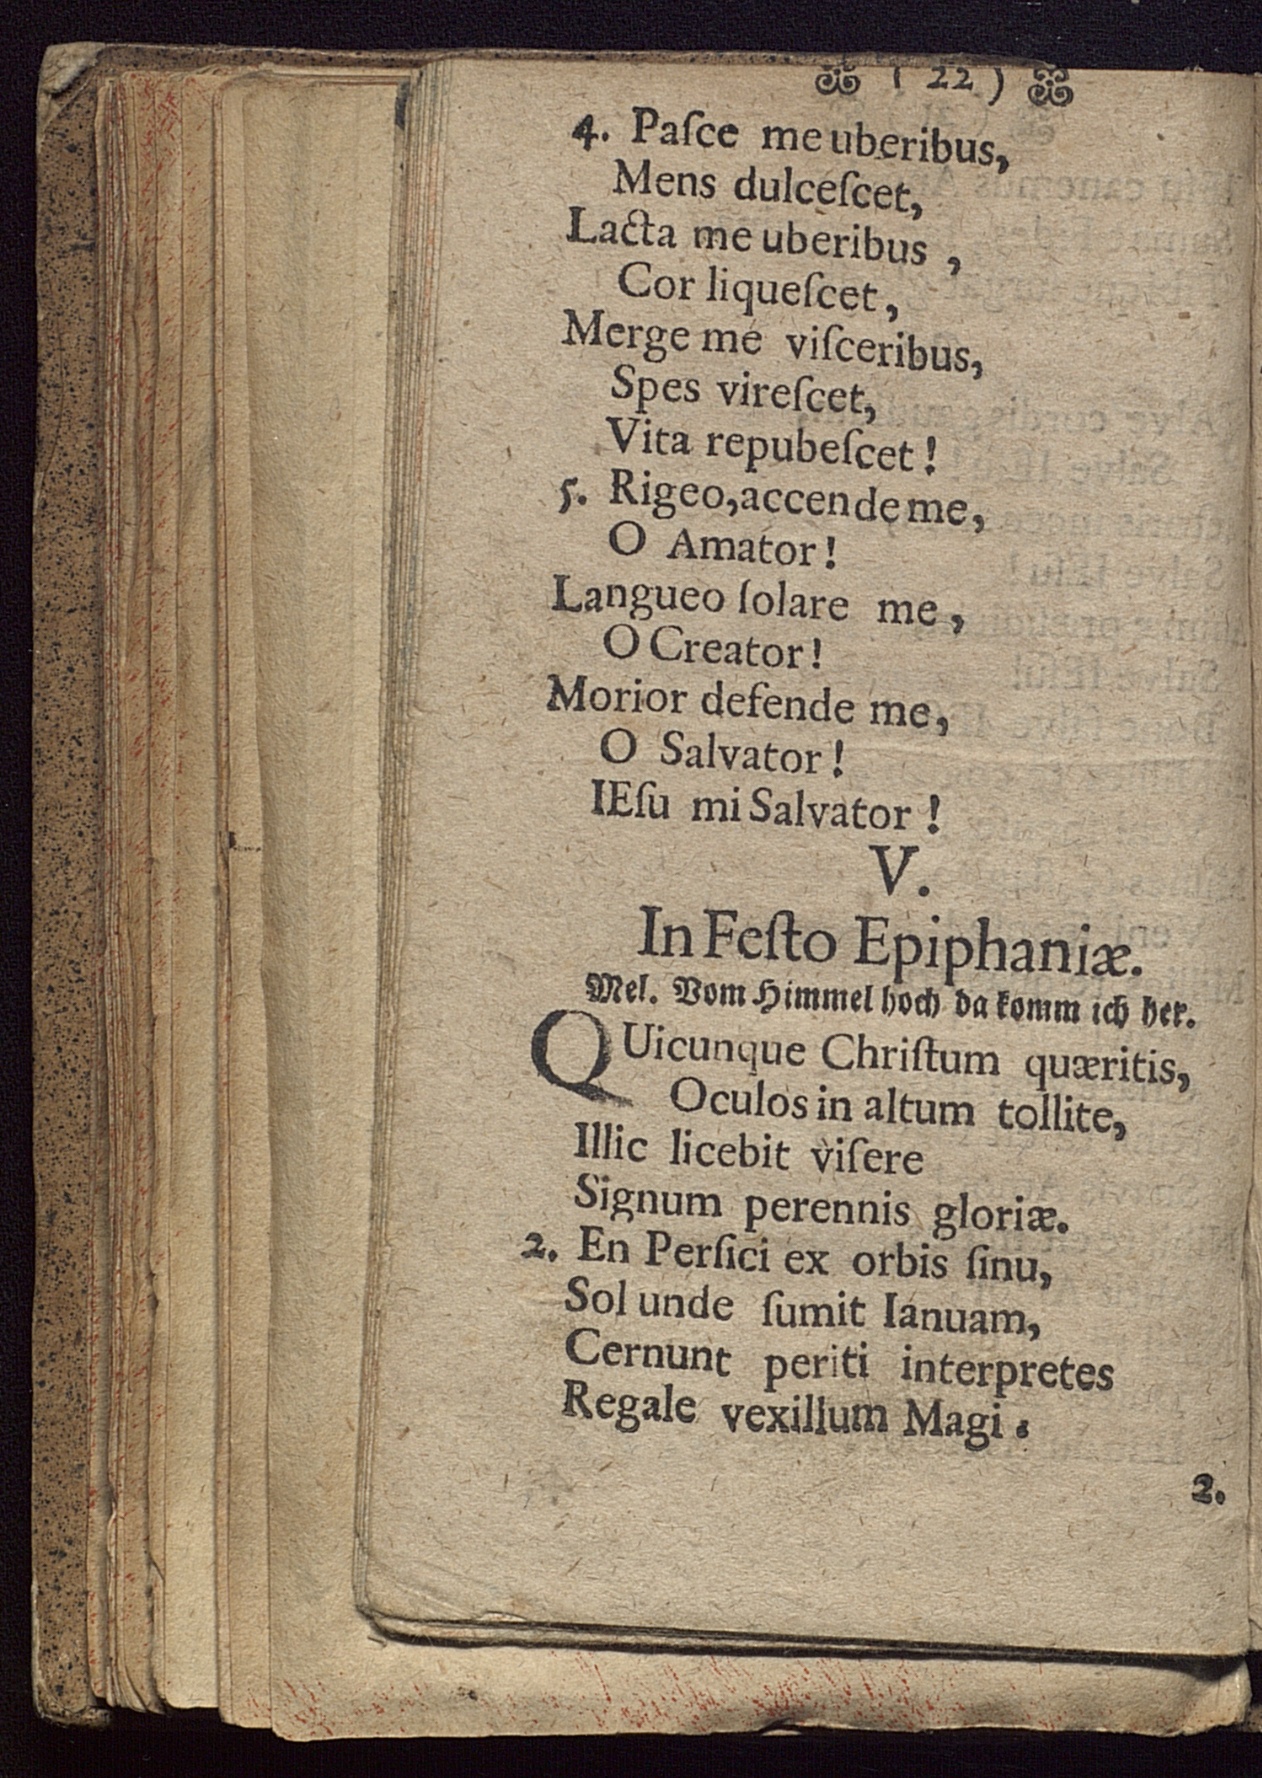 ( 22 )
4. Paſce me uberibus,
Mens dulceſcet,
Lacta me uberibus ,
Cor liqueſcet,
Merge me viſceribus,
Spes vireſcet,
Vita repubeſcet!
5. Rigeo, accende me,
O Amator!
Langueo ſolare me,
O Creator!
Morior defende me,
O Salvator!
IEſu mi Salvator!
V.
In Feſto Epiphaniæ.
Mel. Vom Himmel hoch da komm ich her.
QUicunque Chriſtum quæritis,
Oculos in altum tollite,
Illic licebit viſere
Signum perennis gloriæ.
2. En Perſici ex orbis ſinu,
Sol unde ſumit Ianuam,
Cernunt periti interpretes
Regale vexillum Magi.
2.